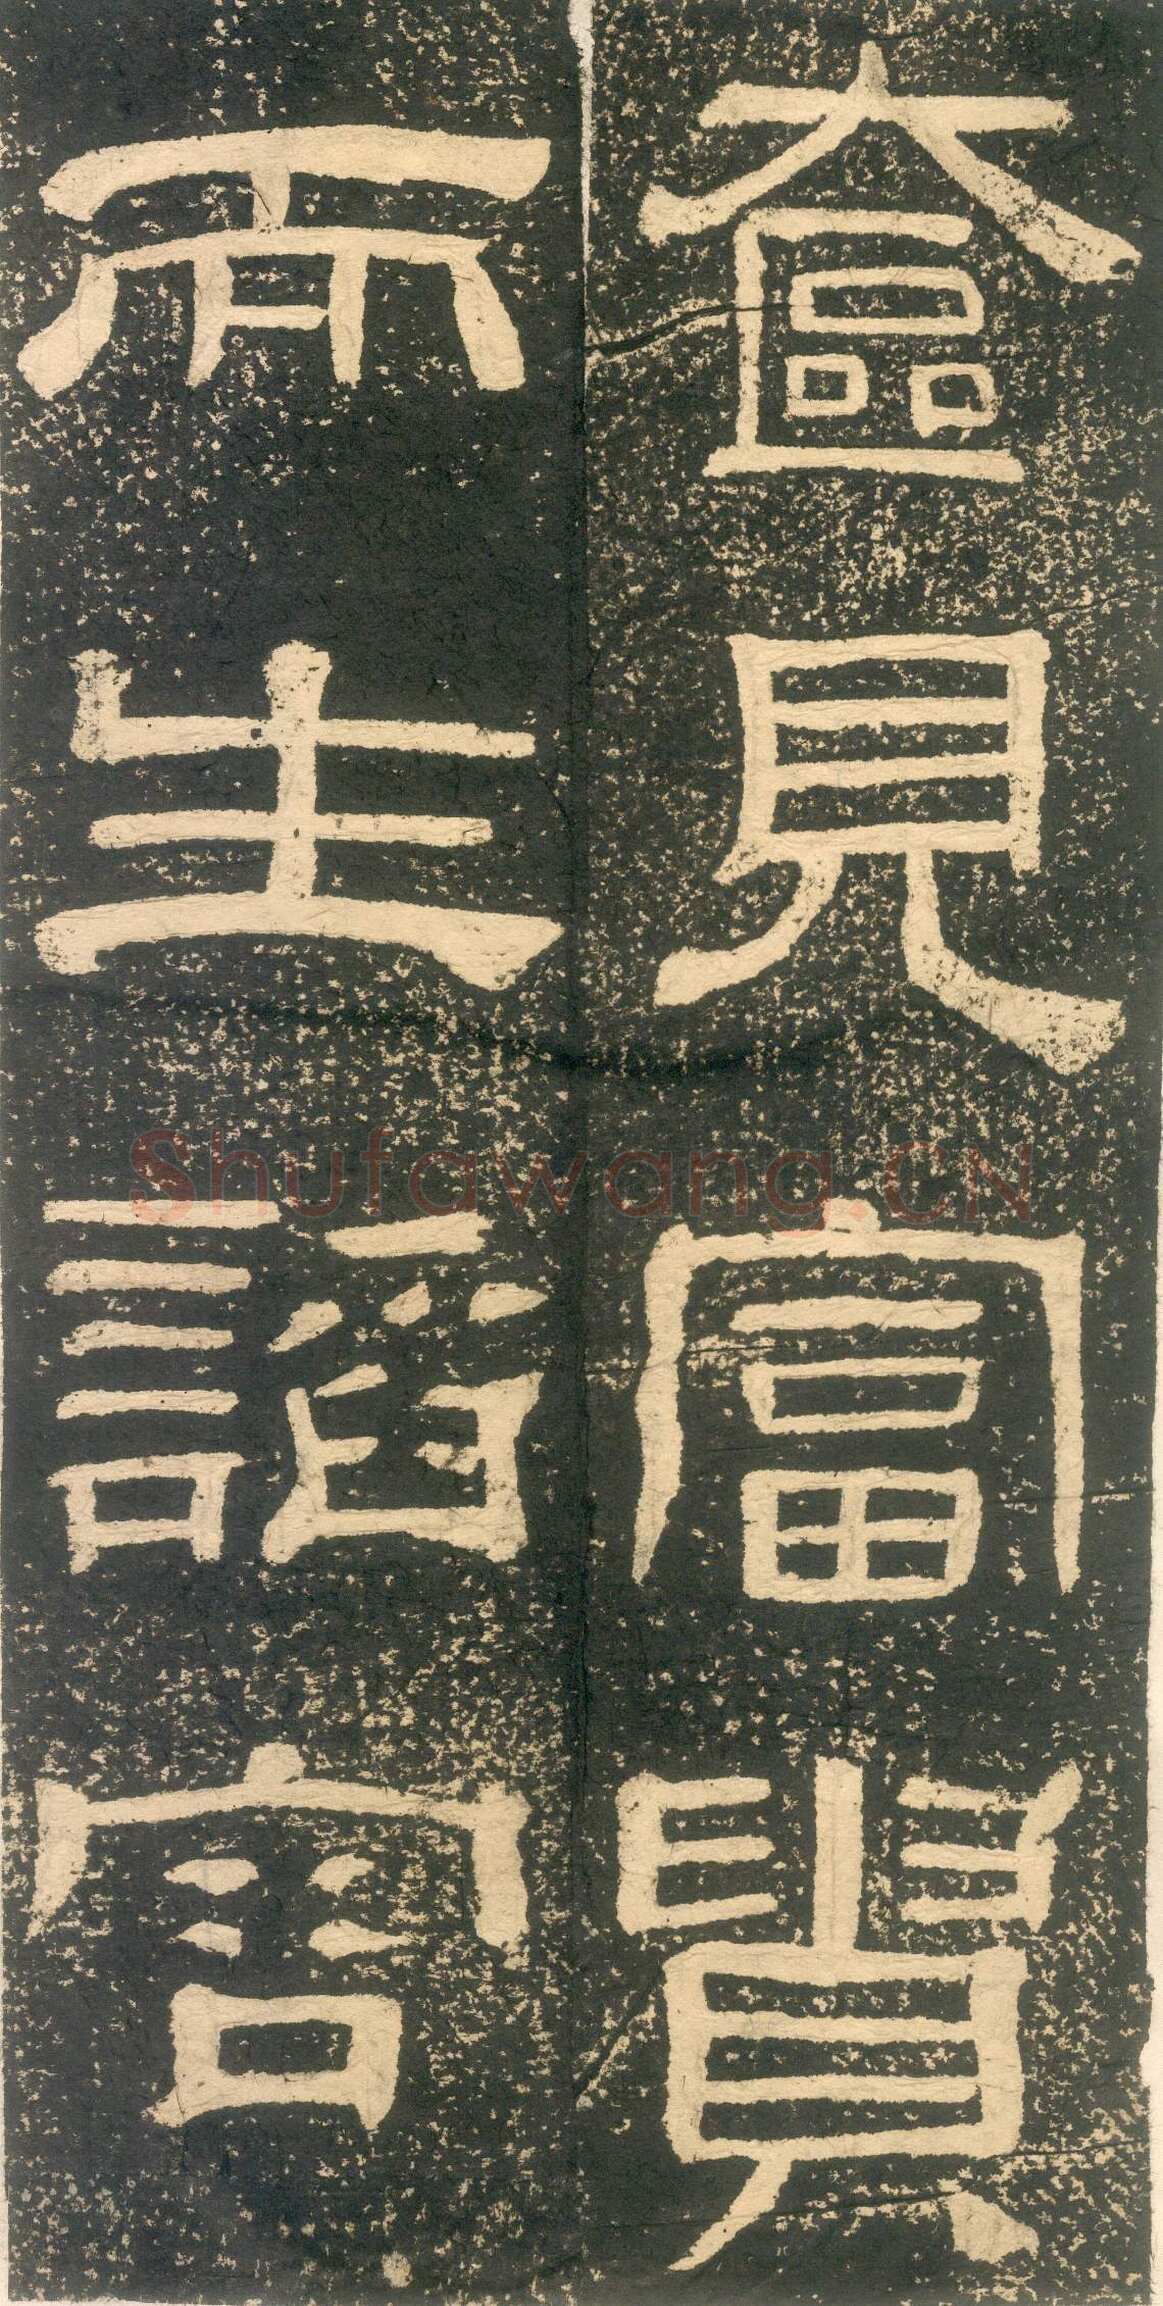 奩見富貴
而生謟容
Shufawang.CN